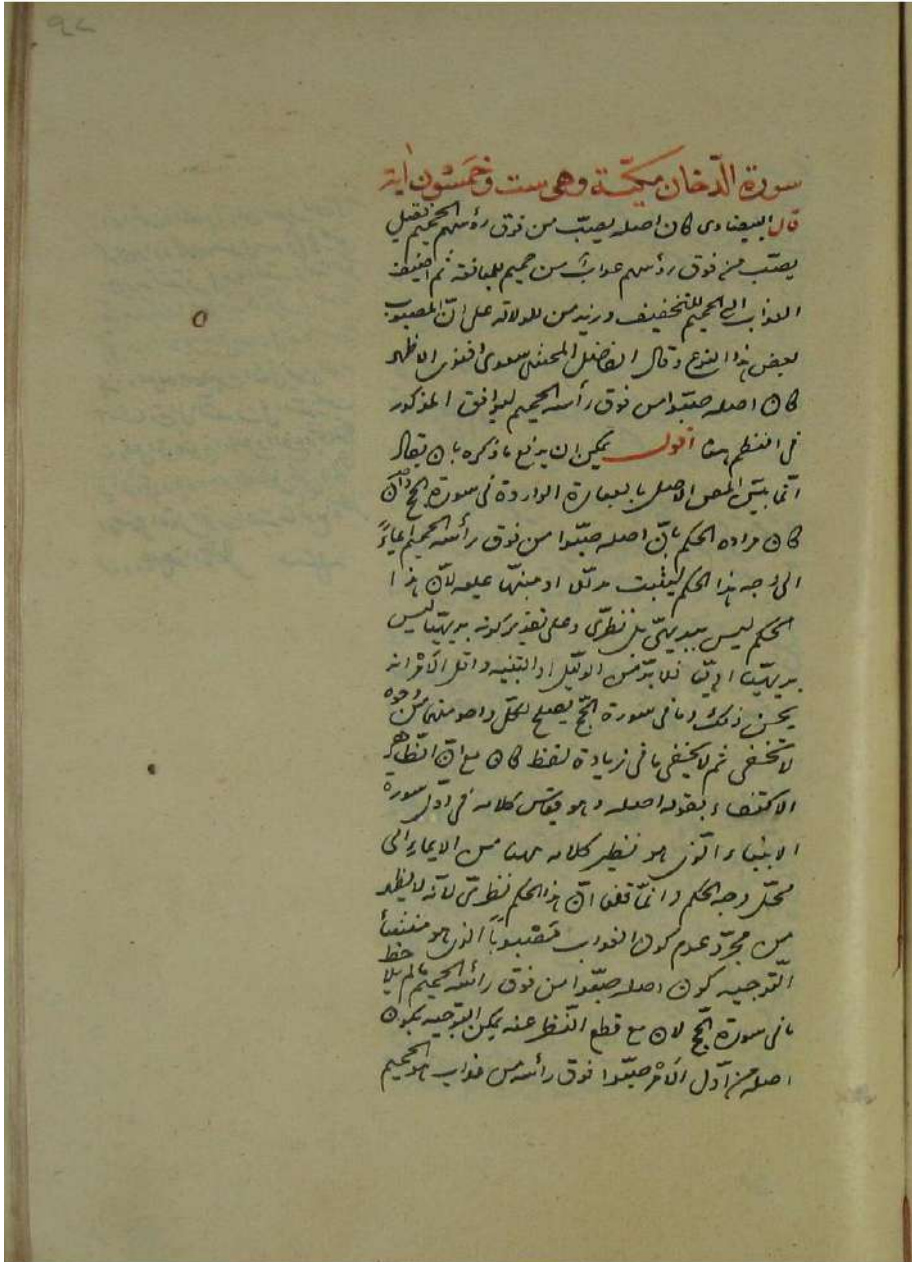 سورة الدّخان مكيّة وهى ست وخمسون اية
قال البيضاوى كان اصله يصبّ من فوق رؤسهم الحميم فقيل
يصبّ من فوق رؤسهم عذاب من حميم للمبالغة ثم اضيف
العذاب الى الحميم للتخفيف وزيد من للدلالة على انّ المصبوب
بعض هذا النوع وقال الفاضل المحشى سعدى افندى الاظهر
كان اصله صبّوا من فوق رأسه الحميم ليوافق المذكور
فى النظم هنا اقول يمكن ان يدفع ما ذكره بان يقال
انما بيّن المص الاصل بالعبارة الواردة فى سورة الحج وان
كان مراده الحكم بانّ اصله صبّوا من فوق رأسه الحميم ايماءً
الى وجه هذا الحكم ليثبت مدللا او منبّها عليه لانّ هذا
الحكم ليس ببديهىّ بل نظرىّ وعلى تقدير كونه بديهيّا ليس
بديهيّا اوليّا فلا بدّ من الدليل او التنبيه واقل الامر انه
يحسن ذلك وما فى سورة الحجّ يصلح لكلّ واحد منهما من وجوه
لا تخفى ثم لا يخفى ما فى زيادة لفظ كان مع انّ الظاهر
الاكتفاء بقوله اصله وهو كلامه فى اوّل سورة
الانبياء الّذى هو نظير كلامه ههنا من الايماء الى
محلّ وجه الحكم وانّما قلنا انّ هذا الحكم نظرىّ لانّه لا يظهر
من مجرّد عدم كون العذاب مصبوباً الذى هو منشأ
التوجيه كون اصله صبّوا من فوق رأسه الحميم ما لم يلاحظ
ما فى سورة الحجّ لان مع قطع النّظر عنه يمكن التوجيه بكون
اصله من اوّل الامر صبّوا فوق رأسه من عذاب هو الحميم